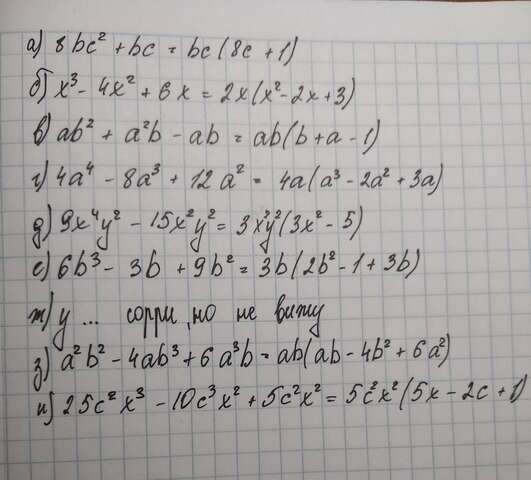 а) 8bc² + bc = bc(8c + 1)
б) x³ - 4x² + 6x = 2x(x² - 2x + 3)
в) ab² + a²b - ab = ab(b + a - 1)
г) 4a⁴ - 8a³ + 12a² = 4a(a³ - 2a² + 3a)
д) 9x⁴y² - 15x²y² = 3x²y²(3x² - 5)
е) 6b³ - 3b + 9b² = 3b(2b² - 1 + 3b)
ж) y ... сорри, но не вижу
з) a²b² - 4ab³ + 6a³b = ab(ab - 4b² + 6a²)
и) 25c²x³ - 10c³x² + 5c²x² = 5c²x²(5x - 2c + 1)